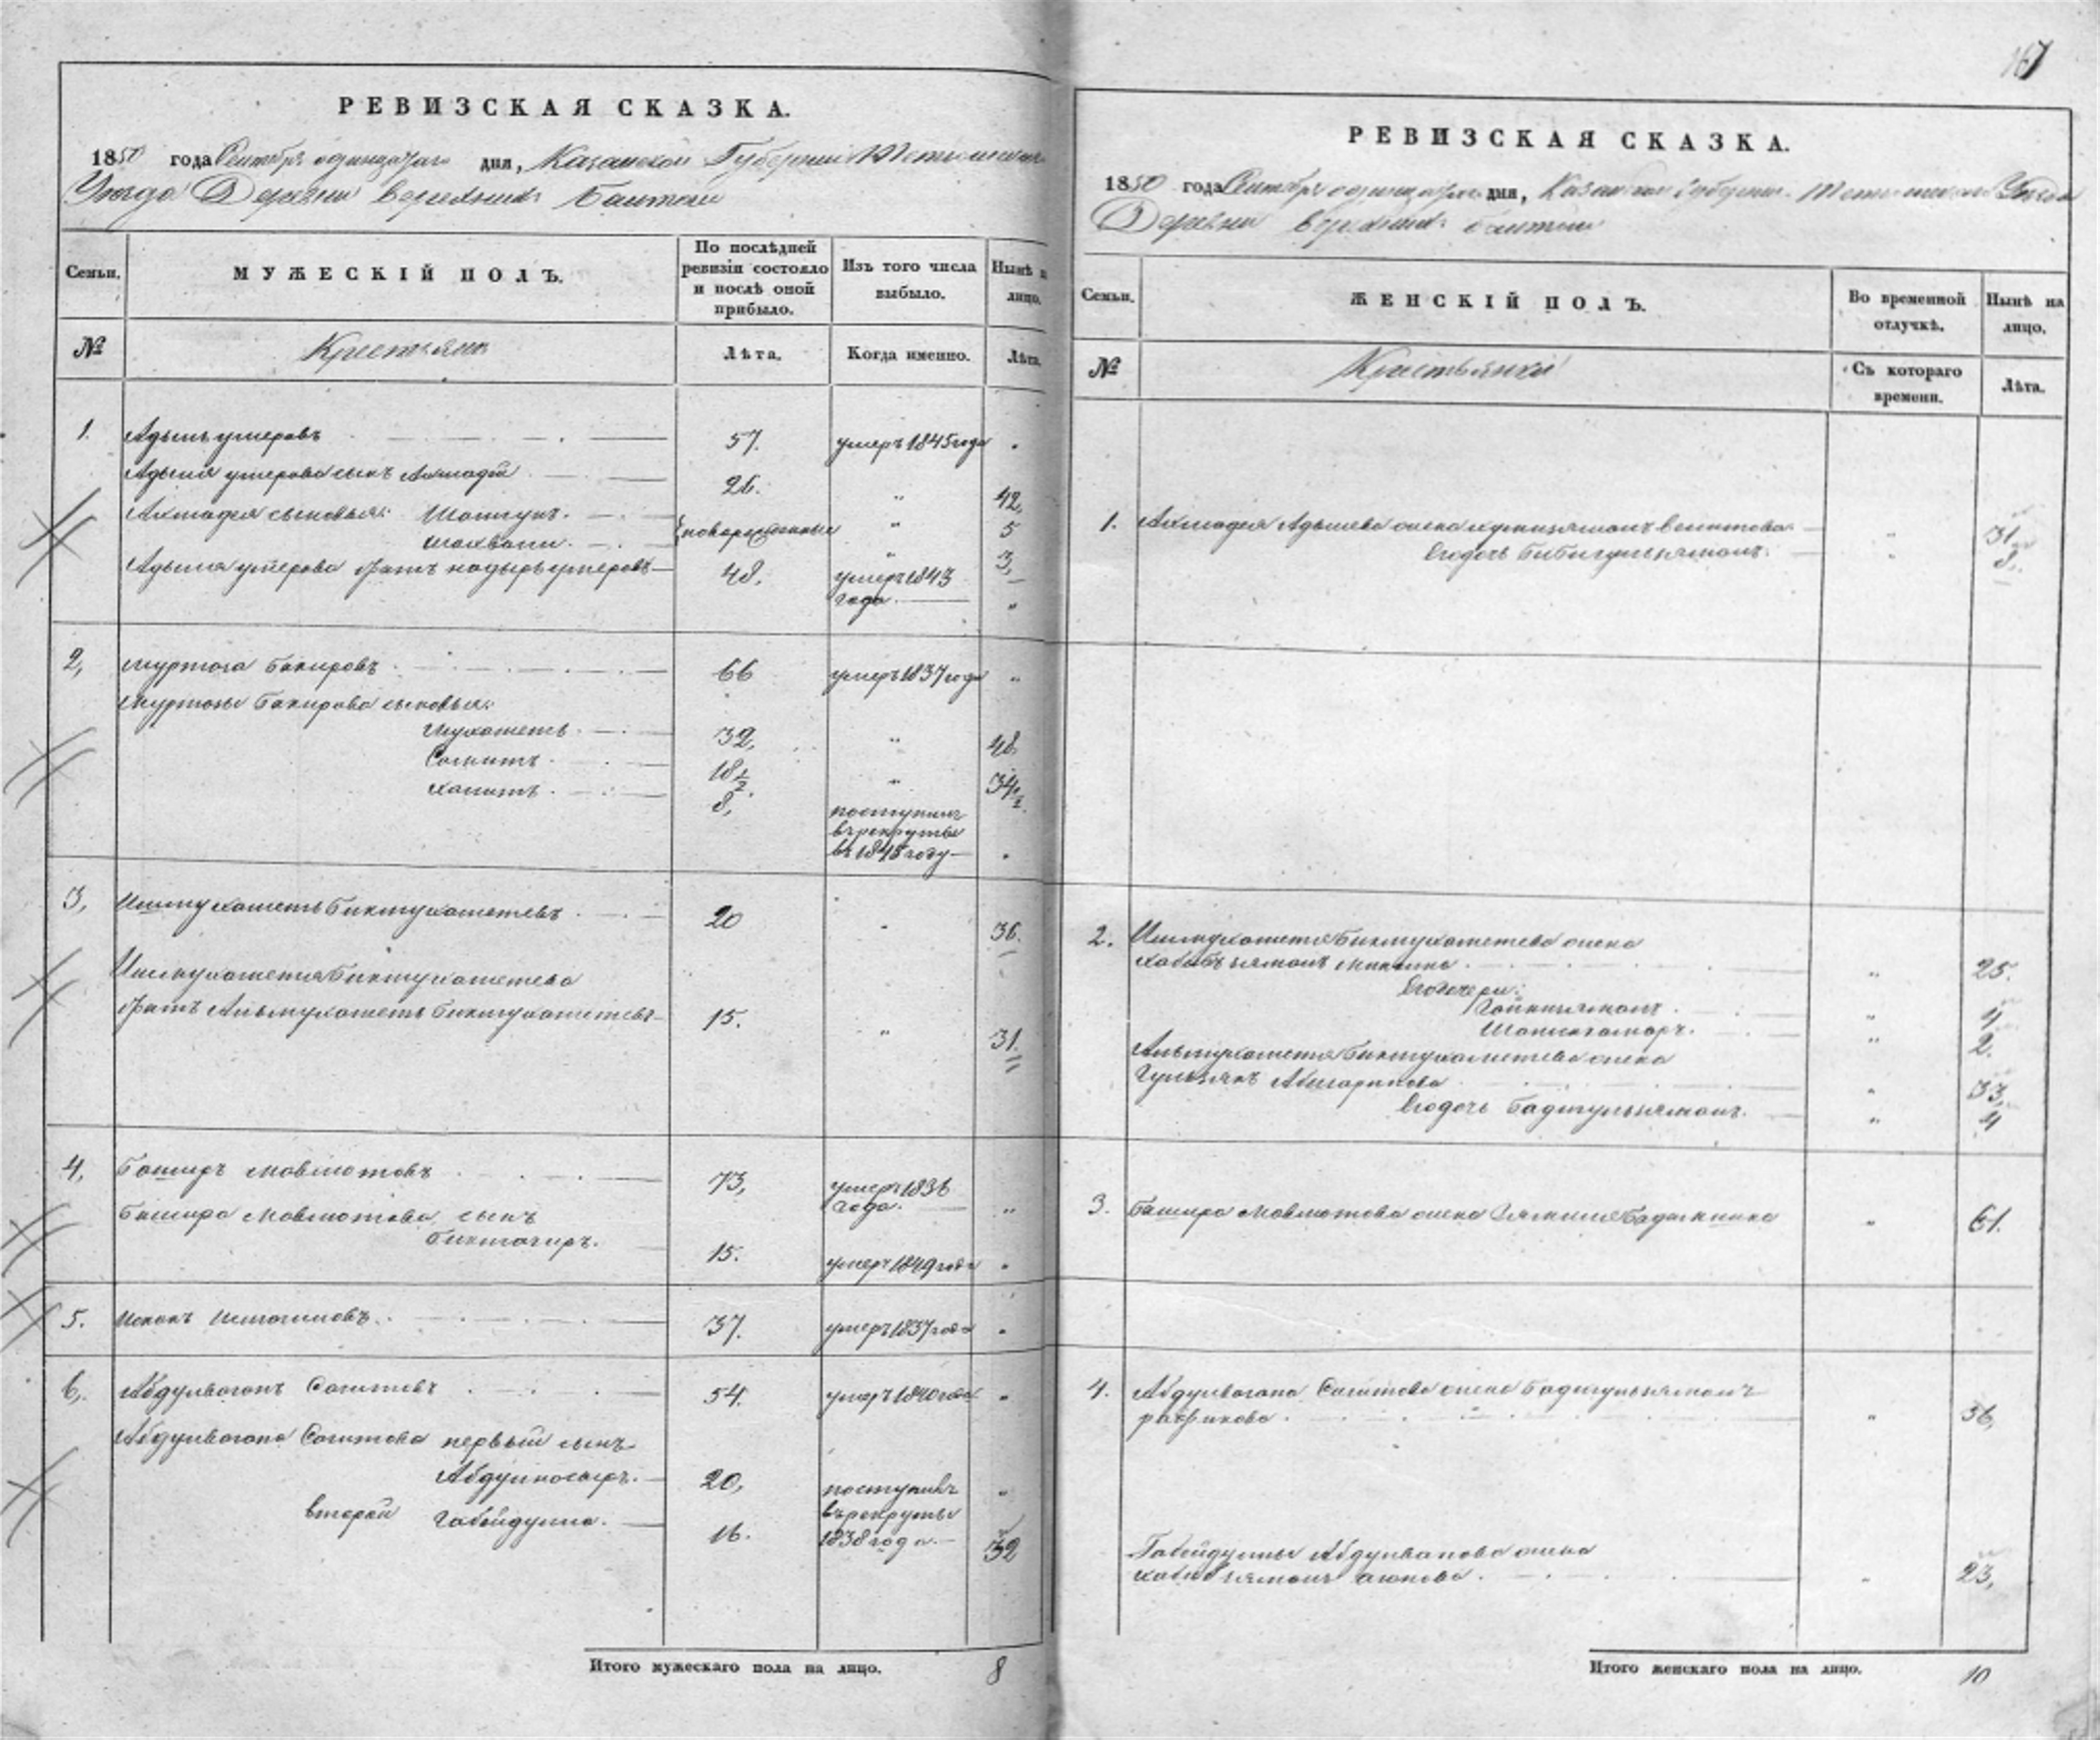 РЕВИЗСКАЯ СКАЗКА.
1850 года Сентября одинцатаго дня, Казанской Губернии Тетюшскаго
Уезда Деревни верхнихъ Балтаи
Семьи. МУЖЕСКІЙ ПОЛЪ. По послѣдней ревизіи состояло и послѣ оной прибыло. Изъ того числа выбыло. Нынѣ на лицо.
№ Крестьяне Лѣта. Когда именно. Лѣта.
1. Адылъ умеровъ 57. умеръ 1845 года
Адыля умерова сынъ Ахмадѣй 26. " 42,
Ахмадея сыновья: новорожденные " 5
" 3,
Адыля умерова братъ надыръ умеровъ 48. умеръ 1843 года "
2, муртаза бакировъ 66 умеръ 1837 года "
Муртазы бакирова сыновья:
мухаметь 32, " 48
Сагитъ 18½. " 34½.
хамитъ 8, поступилъ
въ рекруты
въ 1845 году
3, Ишмухаметь бикмухаметевъ 20 " 36.
Ишмухаметя бикмухаметева
братъ Альмухаметь бикмухаметевъ 15. " 31.
4, Баширъ мавлютовъ 73, умеръ 1836 года. "
Башира мавлютова сынъ
бикмагиръ. 15. умеръ 1849 года
5. 37. умеръ 1837 года
6,. Абдулвагапъ Сагитовъ 54. умеръ 1840 года
Абдулвагапа Сагитова первый сынъ
Абдулнасыръ. 20, поступилъ "
въ рекруты
второй габейдулла. 16. 1838 года. 32
Итого мужескаго пола на лицо. 8
167
РЕВИЗСКАЯ СКАЗКА.
1850 года Сентября одинцатаго дня, Казанской Губернии Тетюшскаго Уезда
Деревни верхнихъ балтаи
Семьи. ЖЕНСКІЙ ПОЛЪ. Во временной отлучкѣ. Нынѣ на лицо.
№ Крестьянки Съ котораго времени. Лѣта.
1. Ахмадея Адылева жена " 31
Его дочь Бибигульзямалъ. " 8.
2. Ишмухаметя Бикмухаметева жена
хабибъзямалъ " 25.
Его дочери:
" 4
" 2.
Альмухаметя Бикмухаметева жена
" 33,
Его дочь Бадигульзямалъ. " 4
3. Башира мавлютова жена " 61.
4. Абдулвагапа Сагитова жена Бадигульзямалъ
рафикова. " 56,
Габейдуллы Абдулвапова жена
хабибзямалъ аюпова. " 23,
Итого женскаго пола на лицо. 10